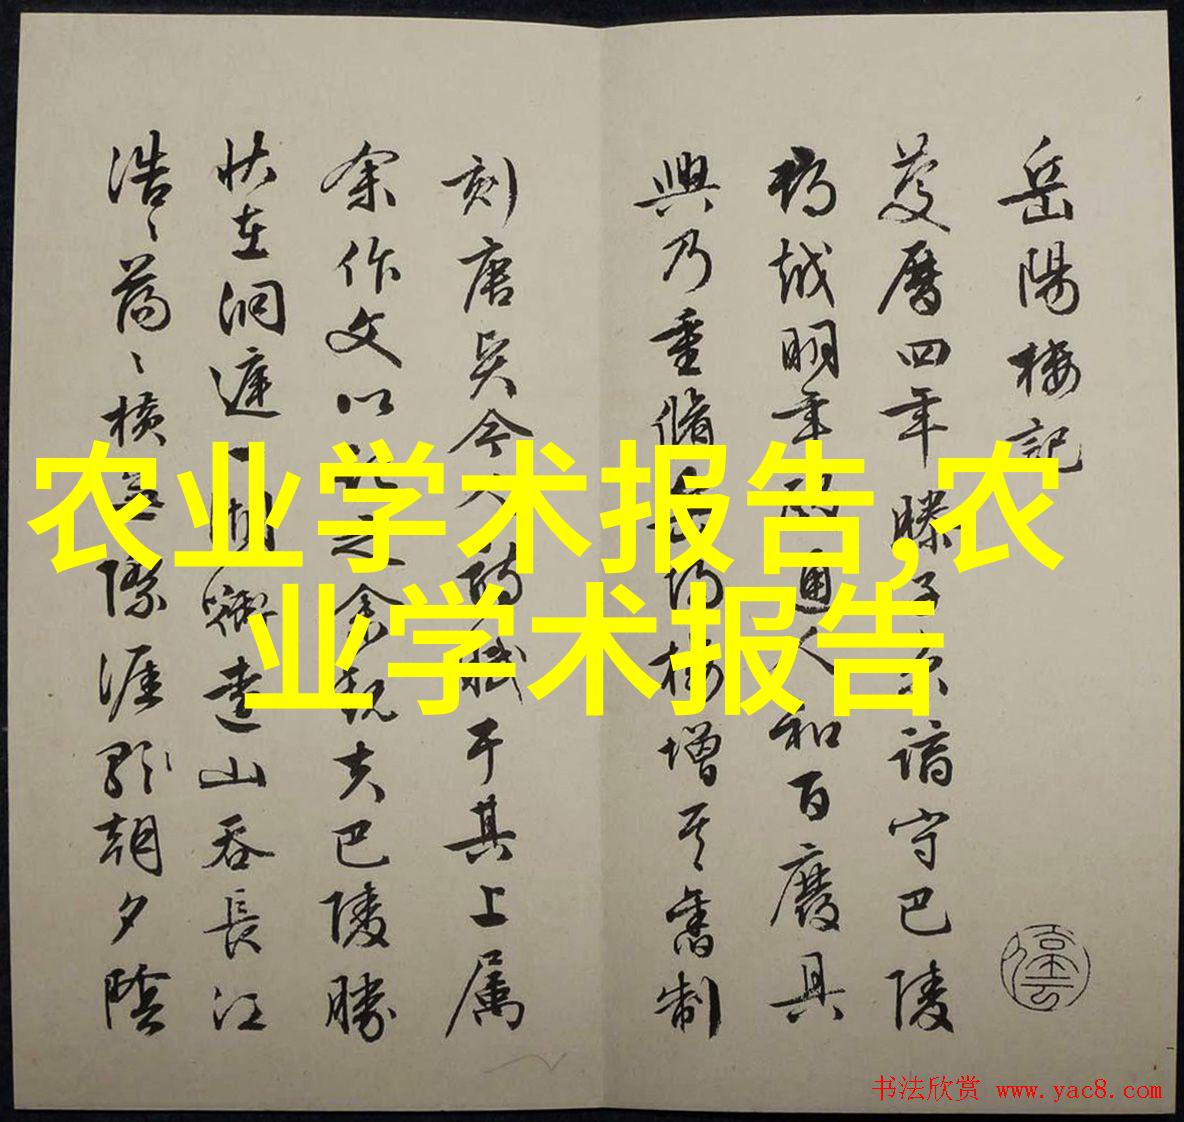 岳陽楼記
慶曆四年滕子京謫守巴陵
郡越明年政通人和百廢具
興乃重脩岳陽楼增其舊制
刻唐賢今人詩賦于其上属
余作文以記之余觀夫巴陵勝
狀在洞庭一湖銜遠山吞長江
浩〻蕩〻橫無際涯朝夕陰
农业学术报告,农
业学术报告
书法欣赏 www.yac8.com